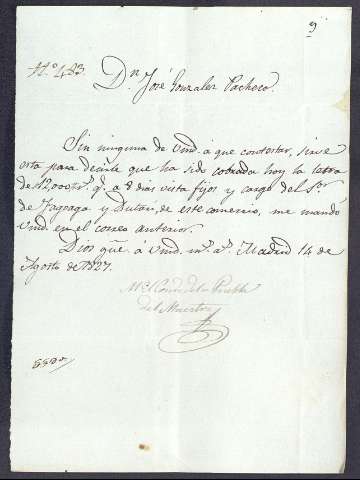 9
N.º 483.
Dn. José Gonzalez Pacheco.
Sin ninguna de Vmd. á que contestar, sirve
esta para decirle que ha sido cobrada hoy la letra
de 12,000 rs. qe. a 8 dias vista fijos y cargo del Sor.
de Jagoaga y Dutari, de este comercio, me mandó
Vmd. en el correo anterior.
Dios gue. á Vmd. ms. as. Madrid 14 de
Agosto de 1827.
El Conde de la Puebla
del Maestre